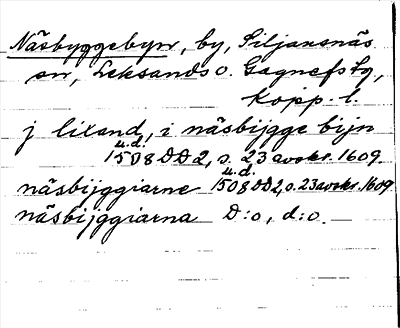 Näsbyggebyn, by, Siljansnäs
sn, Leksands o. Gagnefs tg,
Kopp. l.
j lixand, i näsbijgge bijn
u.d.
1508 DD2, o. 23 avskr. 1609.
u.d.
näsbijggiarne 1508 DD2, o. 23 avskr. 1609
näsbijggiarna D:o, d:o.